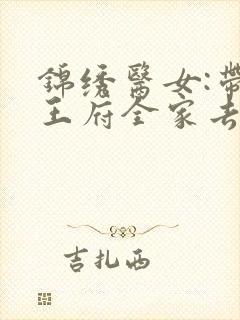 錦綉醫女:帶
王府全家去
吉扎西